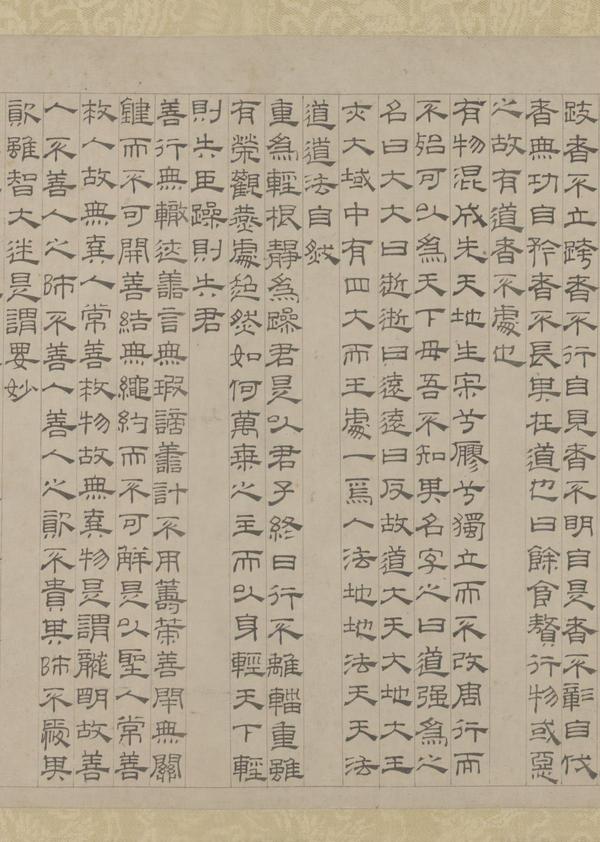 跂者不立跨者不行自見者不明自是者不彰自伐
者無功自矜者不長其在道也曰餘食贅行物或惡
之故有道者不處也
有物混成先天地生寂兮寥兮獨立而不改周行而
不殆可以為天下母吾不知其名字之曰道强為之
名曰大大曰逝逝曰遠遠曰反故道大天大地大王
亦大域中有四大而王處一焉人法地地法天天法
道道法自然
重為輕根靜為躁君是以君子終日行不離輜重雖
有榮觀燕處超然如何萬乘之主而以身輕天下輕
則失臣躁則失君
善行無轍迹善言無瑕謫善計不用籌策善閉無關
鍵而不可開善結無繩約而不可解是以聖人常善
救人故無棄人常善救物故無棄物是謂襲明故善
人不善人之師不善人善人之資不貴其師不愛其
資雖智大迷是謂要妙